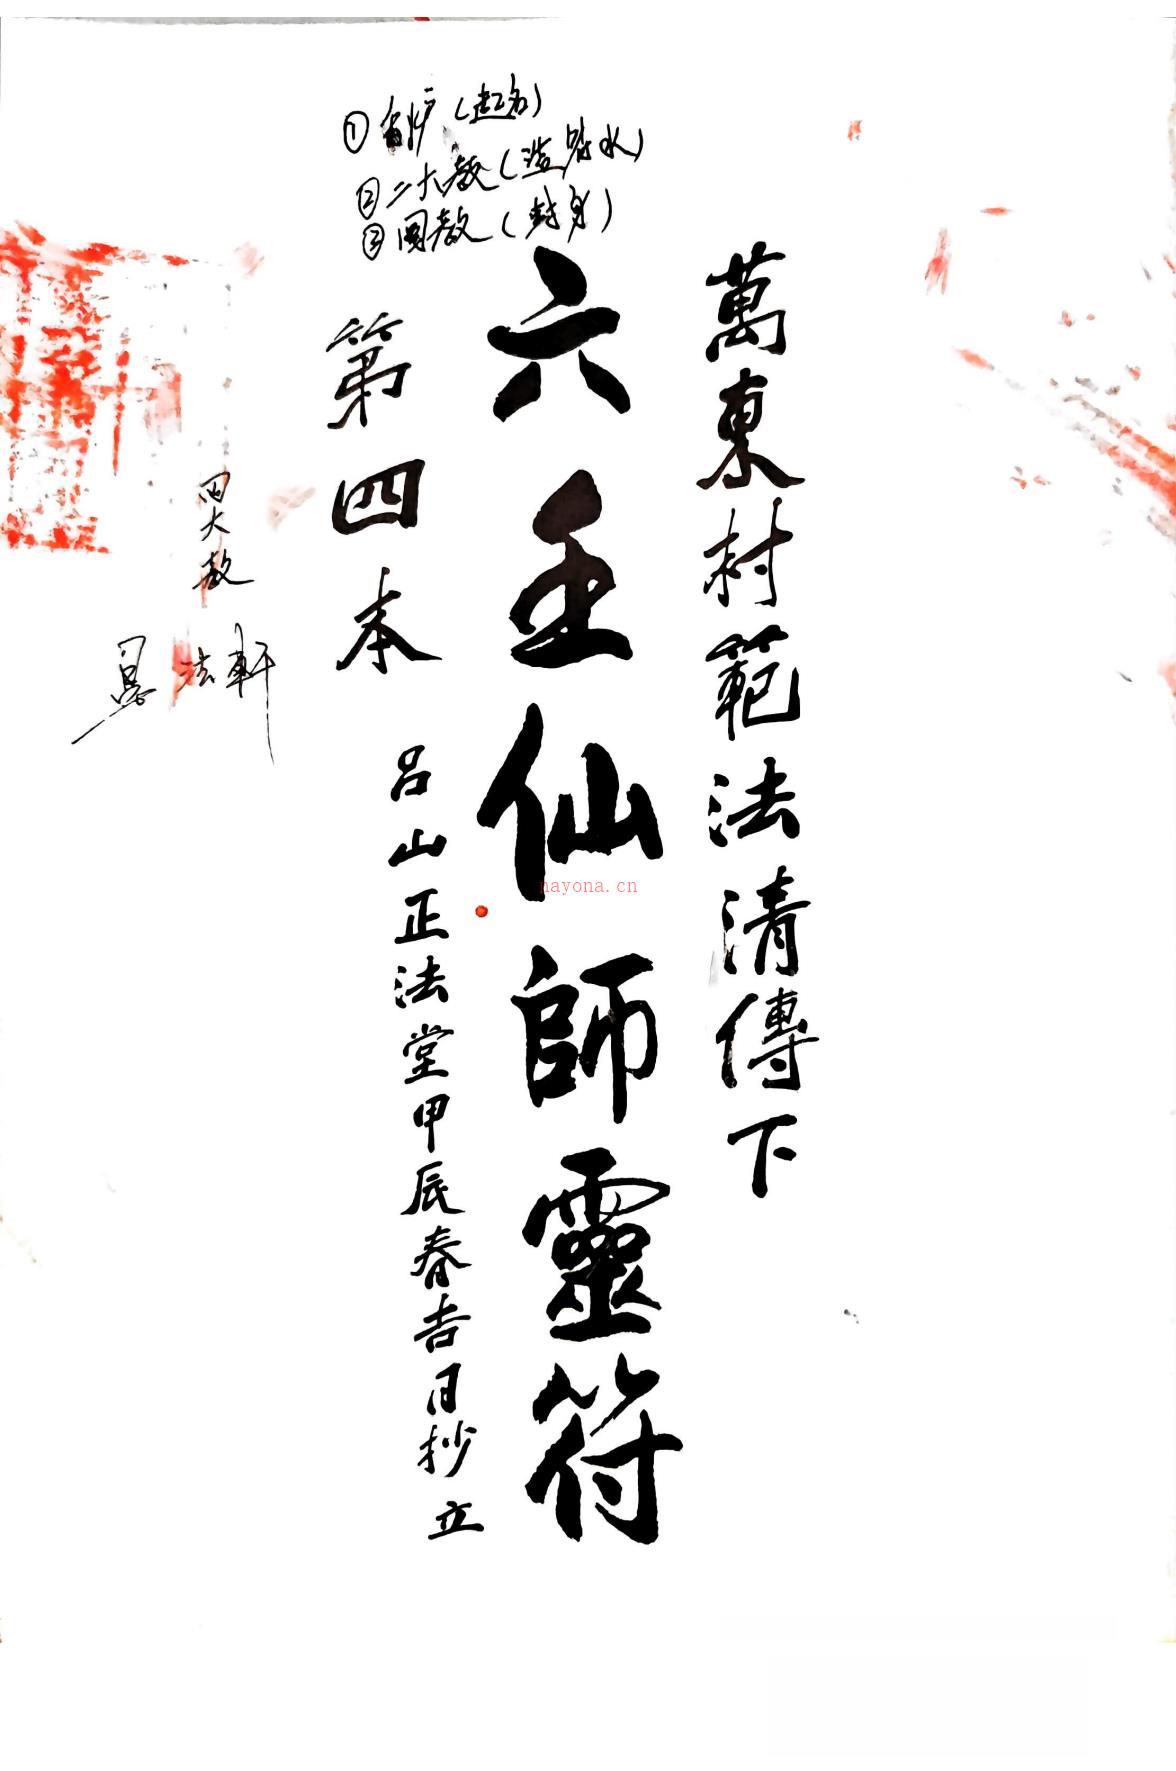 萬東村範法清傳下
六壬仙師靈符
第四本
呂山正法堂甲辰春吉日抄立
①香炉（起名）
②二大教（造路水）
③閭教（封身）
四大教
法軒
nayona.cn